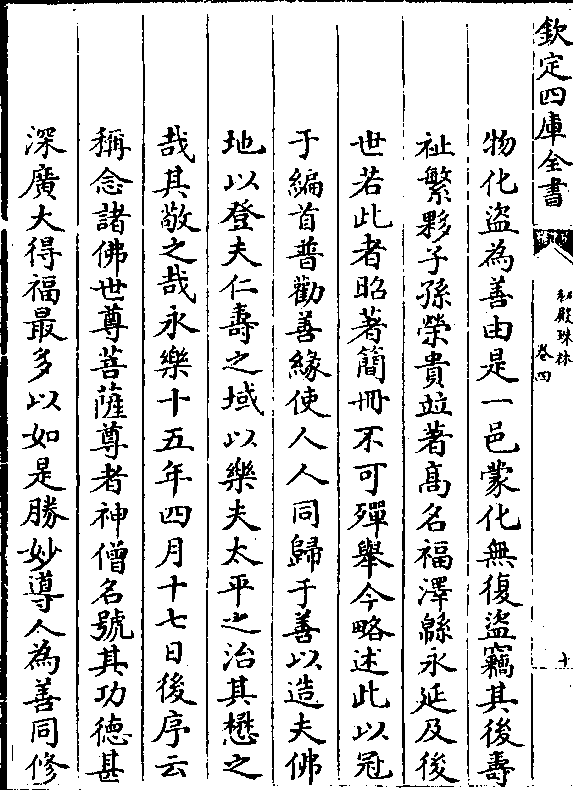 欽定四庫全書
秘殿珠林 卷四
十
物化盜為善由是一邑蒙化無復盜竊其後壽
祉繁夥子孫榮貴竝著髙名福澤緜永延及後
世若此者昭著簡冊不可殫舉今略述此以冠
于編首普勸善緣使人人同歸于善以造夫佛
地以登夫仁壽之域以樂夫太平之治其懋之
哉其敬之哉永樂十五年四月十七日後序云
稱念諸佛世尊菩薩尊者神僧名號其功德甚
深廣大得福最多以如是勝妙導人為善同修